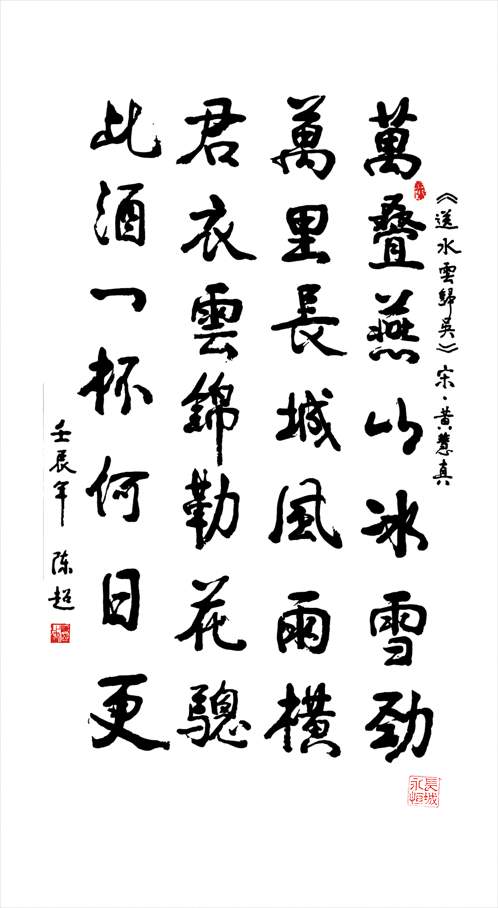 《送水雲歸吳》宋·黃慧真
萬疊燕山冰雪勁
萬里長城風雨橫
君衣雲錦勒花驄
此酒一杯何日更
壬辰年 陈超
長城
永恒